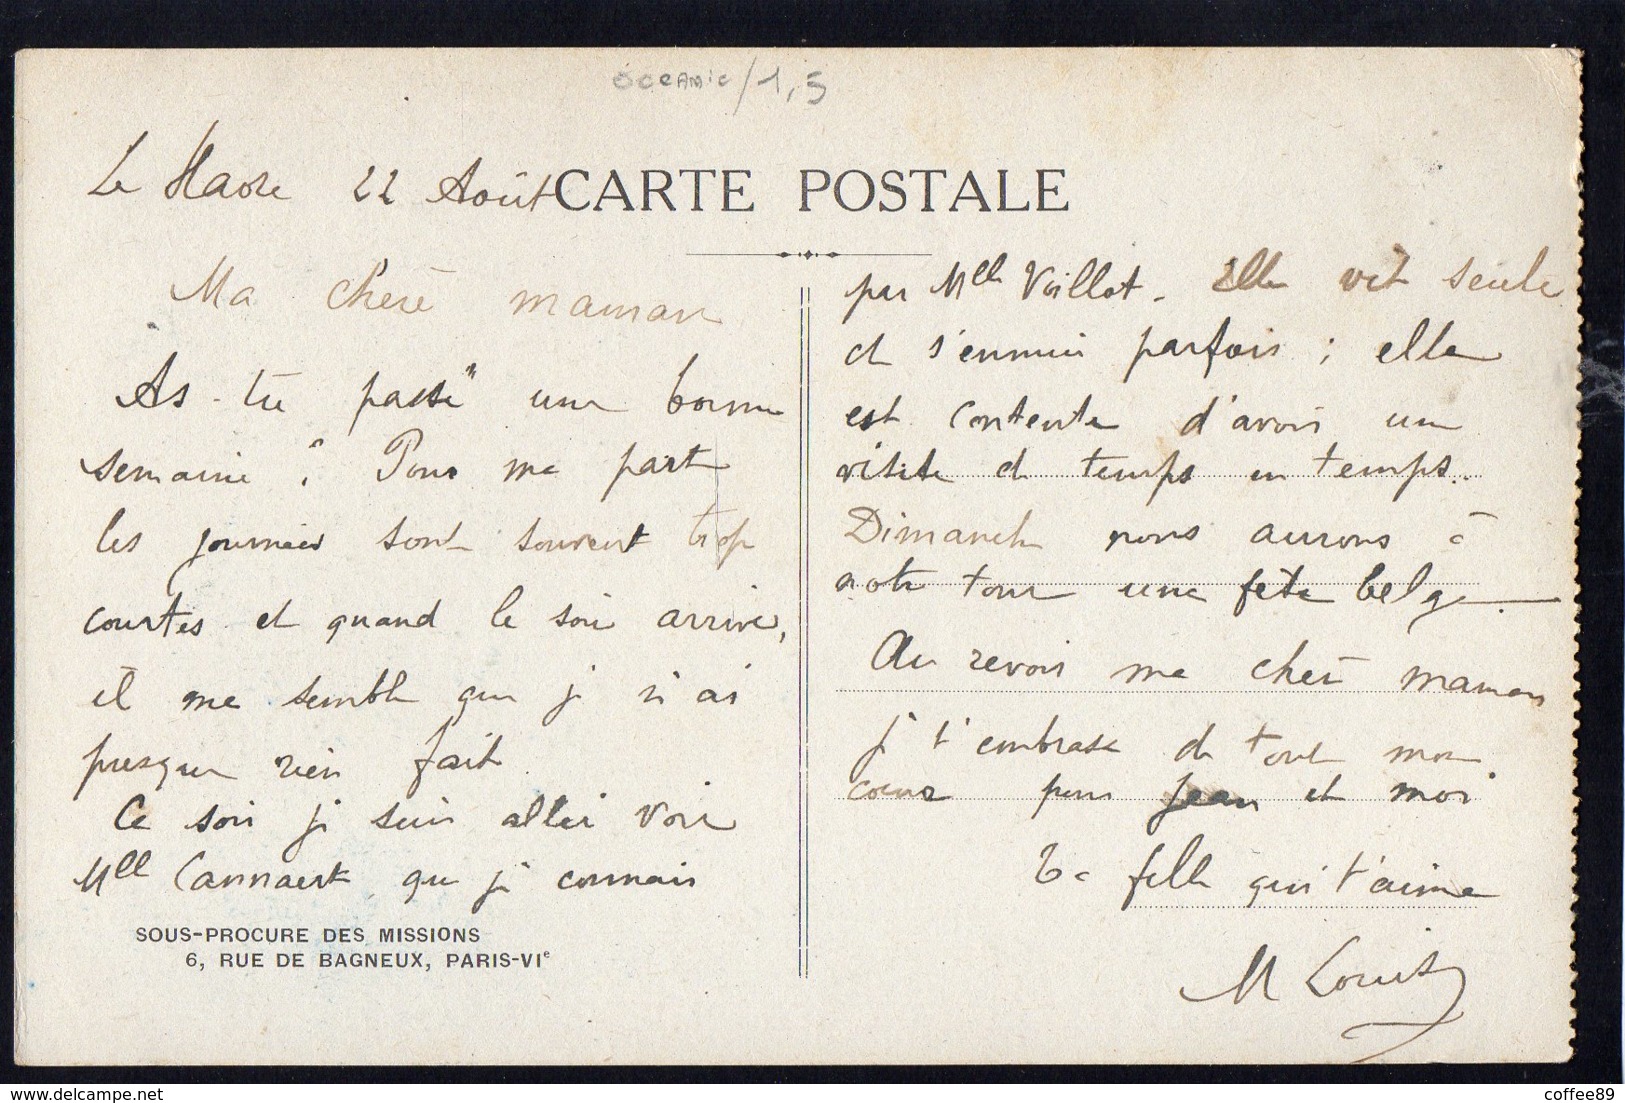 oceanic/1,5
Le Havre 22 Août
CARTE POSTALE
Ma chère maman
As-tu passé une bonne
semaine ? Pour ma part
les journées sont souvent trop
courtes et quand le soir arrive,
il me semble que je n'ai
presque rien fait.
Ce soir je suis allée voir
Mlle Cannaert que je connais
SOUS-PROCURE DES MISSIONS
6, RUE DE BAGNEUX, PARIS-VIe
par Mlle Voillot. Elle vit seule
et s'ennuie parfois ; elle
est contente d'avoir une
visite de temps en temps.
Dimanche nous aurons à
notre tour une fête belge.
Au revoir ma chère maman
je t'embrasse de tout mon
coeur pour Jean et moi
Ta fille qui t'aime
M Louise
coffee89